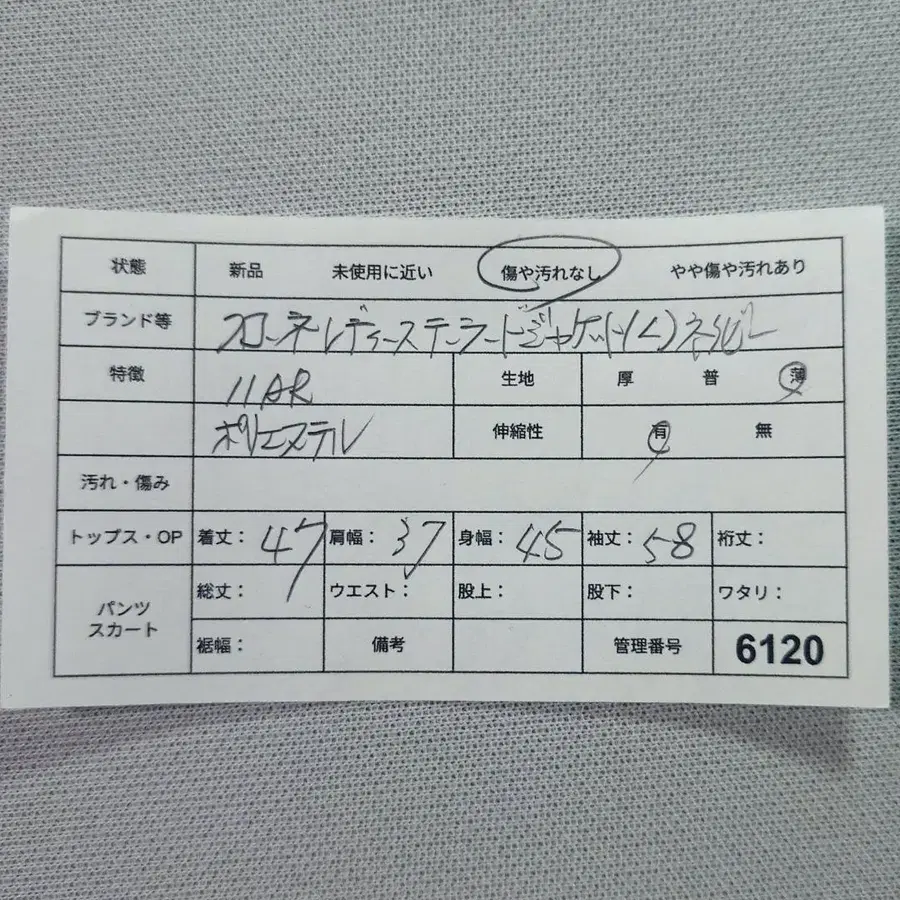 状態 新品 未使用に近い 傷や汚れなし やや傷や汚れあり
ブランド等 フローネ レディース テーラードジャケット(L)ネイビー
特徴 11AR 生地 厚 普 薄
ポリエステル 伸縮性 有 無
汚れ・傷み
トップス・OP 着丈: 47 肩幅: 37 身幅: 45 袖丈: 58 裄丈:
パンツ スカート 総丈: ウエスト: 股上: 股下: ワタリ:
裾幅: 備考 管理番号 6120